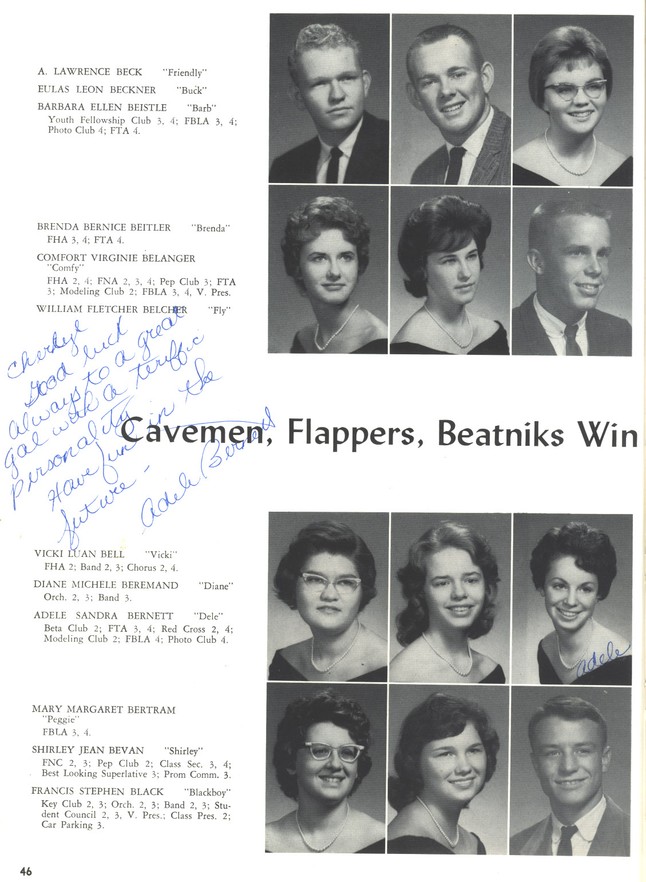 A. LAWRENCE BECK "Friendly"
EULAS LEON BECKNER "Buck"
BARBARA ELLEN BEISTLE "Barb"
Youth Fellowship Club 3, 4; FBLA 3, 4;
Photo Club 4; FTA 4.
BRENDA BERNICE BEITLER "Brenda"
FHA 3, 4; FTA 4.
COMFORT VIRGINIE BELANGER
"Comfy"
FHA 2, 4; FNA 2, 3, 4; Pep Club 3; FTA
3; Modeling Club 2; FBLA 3, 4, V. Pres.
WILLIAM FLETCHER BELCHER "Fly"
Good luck
always to a great
gal with a terrific
personality
Have fun in the
future -
Adele Bernett
Cavemen, Flappers, Beatniks Win
VICKI LUAN BELL "Vicki"
FHA 2; Band 2, 3; Chorus 2, 4.
DIANE MICHELE BEREMAND "Diane"
Orch. 2, 3; Band 3.
ADELE SANDRA BERNETT "Dele"
Beta Club 2; FTA 3, 4; Red Cross 2, 4;
Modeling Club 2; FBLA 4; Photo Club 4.
adele
MARY MARGARET BERTRAM
"Peggie"
FBLA 3, 4.
SHIRLEY JEAN BEVAN "Shirley"
FNC 2, 3; Pep Club 2; Class Sec. 3, 4;
Best Looking Superlative 3; Prom Comm. 3.
FRANCIS STEPHEN BLACK "Blackboy"
Key Club 2, 3; Orch. 2, 3; Band 2, 3; Stu-
dent Council 2, 3, V. Pres.; Class Pres. 2;
Car Parking 3.
46